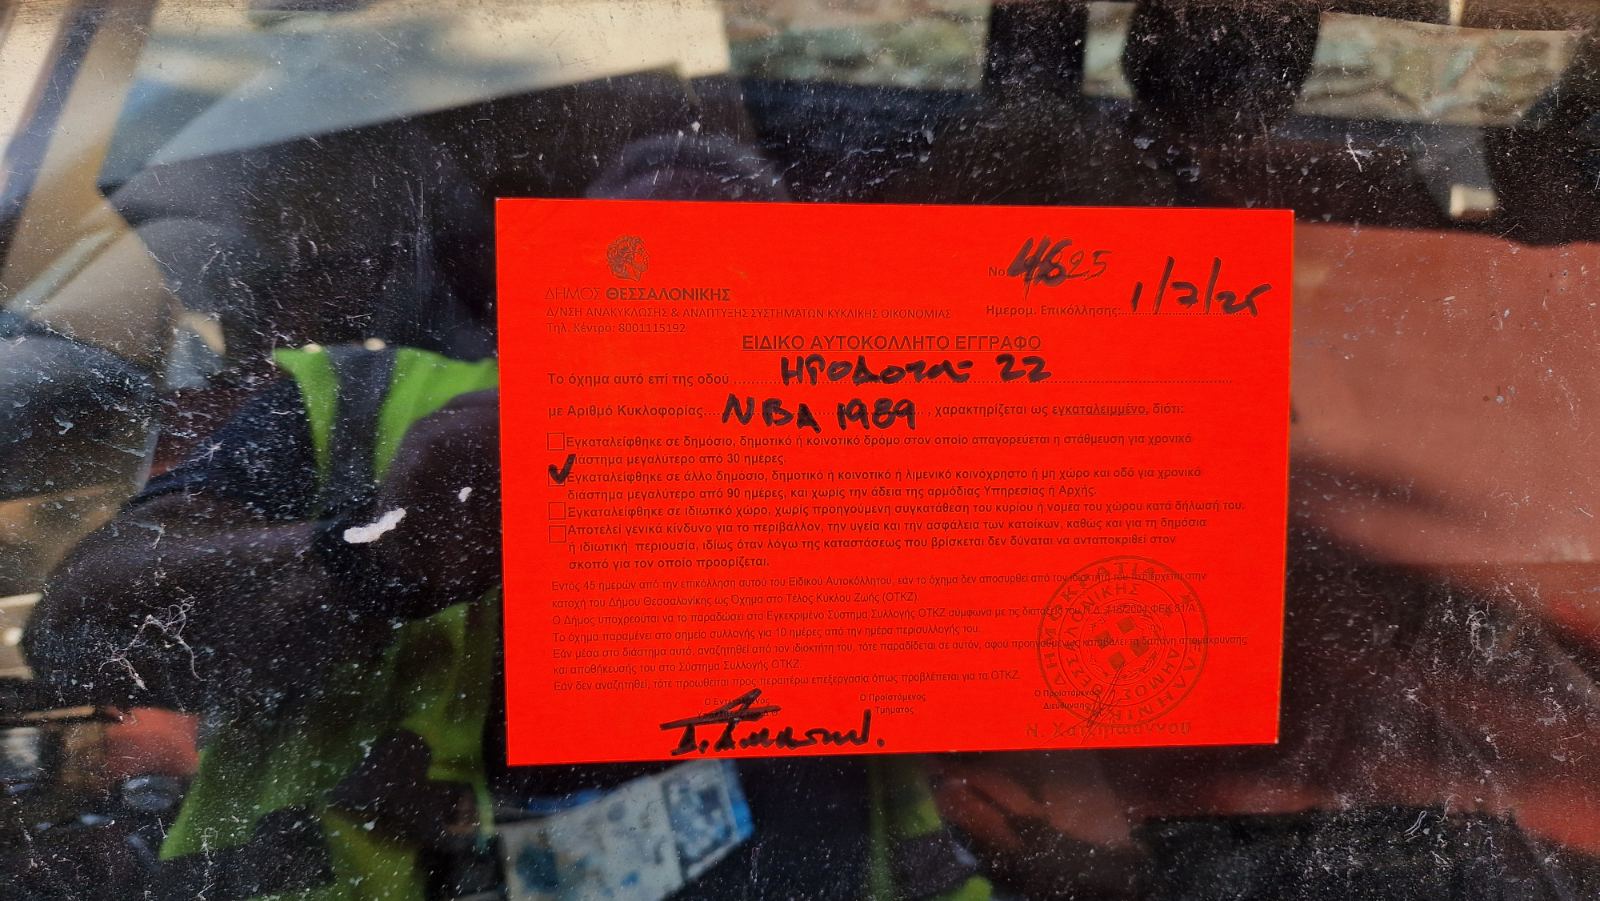 ΔΗΜΟΣ ΘΕΣΣΑΛΟΝΙΚΗΣ
Δ/ΝΣΗ ΑΝΑΚΥΚΛΩΣΗΣ & ΑΝΑΠΤΥΞΗΣ ΣΥΣΤΗΜΑΤΩΝ ΚΥΚΛΙΚΗΣ ΟΙΚΟΝΟΜΙΑΣ
Τηλ. Κέντρο: 8001115192
Νο
Ημερομ. Επικόλλησης: 1/7/25
ΕΙΔΙΚΟ ΑΥΤΟΚΟΛΛΗΤΟ ΕΓΓΡΑΦΟ
Το όχημα αυτό επί της οδού ΗΡΟΔΟΤΟΥ 22
με Αριθμό Κυκλοφορίας ΝΒΑ 1989, χαρακτηρίζεται ως εγκαταλειμμένο, διότι:
Εγκαταλείφθηκε σε δημόσιο, δημοτικό ή κοινοτικό δρόμο στον οποίο απαγορεύεται η στάθμευση για χρονικό
διάστημα μεγαλύτερο από 30 ημέρες.
Εγκαταλείφθηκε σε άλλο δημοσιο, δημοτικό ή κοινοτικό ή λιμενικό κοινόχρηστο ή μη χώρο και οδό για χρονικό
διάστημα μεγαλύτερο από 90 ημέρες, και χωρίς την άδεια της αρμόδιας Υπηρεσίας ή Αρχής.
Εγκαταλείφθηκε σε ιδιωτικό χώρο, χωρίς προηγούμενη συγκατάθεση του κυρίου ή νομέα του χώρου κατά δήλωσή του.
Αποτελεί γενικά κίνδυνο για το περιβάλλον, την υγεία και την ασφάλεια των κατοίκων, καθώς και για τη δημόσια
ή ιδιωτική περιουσία, ιδίως όταν λόγω της καταστάσεως που βρίσκεται δεν δύναται να ανταποκριθεί στον
σκοπό για τον οποίο προορίζεται.
Εντός 45 ημερών από την επικόλληση αυτού του Ειδικού Αυτοκόλλητου, εάν το όχημα δεν αποσυρθεί από τον ιδιοκτήτη του περιέρχεται στην
κατοχή του Δήμου Θεσσαλονίκης ως Όχημα στο Τέλος Κύκλου Ζωής (ΟΤΚΖ).
Ο Δήμος υποχρεούται να το παραδώσει στο Εγκεκριμένο Σύστημα Συλλογής ΟΤΚΖ σύμφωνα με τις διατάξεις του Π.Δ. 116/2004 ΦΕΚ 81/Α
Το όχημα παραμένει στο σημείο συλλογής για 10 ημέρες από την ημέρα περισυλλογής του.
Εάν μέσα στο διάστημα αυτό, αναζητηθεί από τον ιδιοκτήτη του, τότε παραδίδεται σε αυτόν, αφού προηγουμένως καταβάλει τη δαπάνη απομάκρυνσης
και αποθήκευσής του στο Σύστημα Συλλογής ΟΤΚΖ.
Εάν δεν αναζητηθεί, τότε προωθείται προς περαιτέρω επεξεργασία όπως προβλέπεται για τα ΟΤΚΖ.
Ο Προϊστάμενος
Τμήματος
Ο Προϊστάμενος
Διεύθυνσης
ΕΛΛΗΝΙΚΗ ΔΗΜΟΚΡΑΤΙΑ
ΔΗΜΟΣ ΘΕΣΣΑΛΟΝΙΚΗΣ